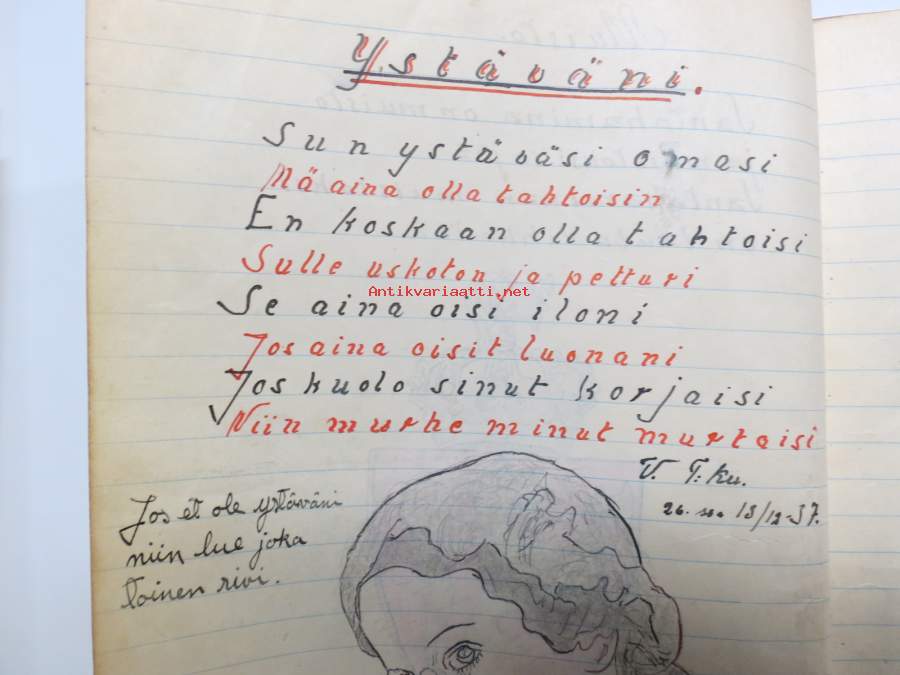 Ystäväni.
Sun ystäväsi omasi
Mä aina olla tahtoisin
En koskaan olla tahtoisi
Sulle uskoton ja petturi
Antikvariaatti.net
Se aina oisi iloni
Jos aina oisit luonani
Jos kuolo sinut korjaisi
Niin murhe minut murtaisi
V. T:ku.
26. 13/12-37.
Jos et ole ystäväni
niin lue joka
toinen rivi.